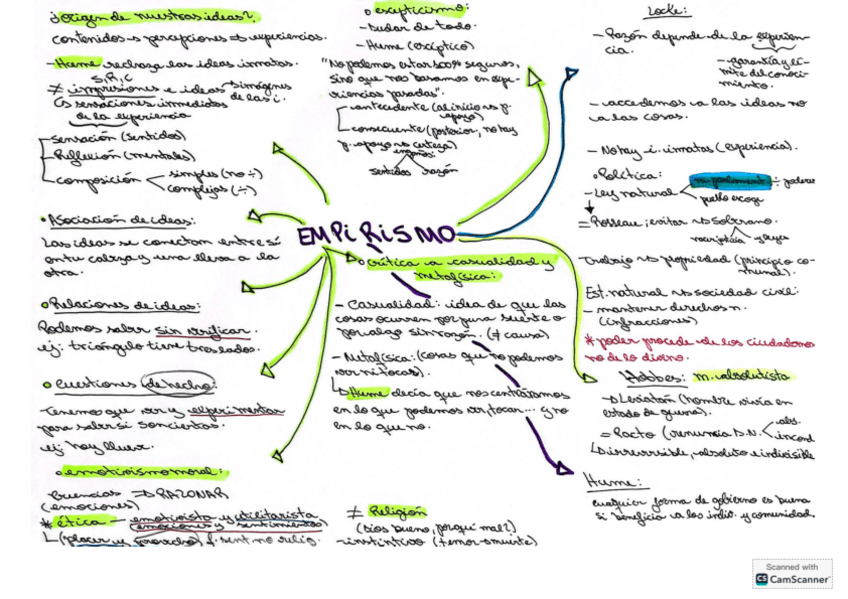 ¿Origen de nuestras ideas?
contenidos → percepciones ⇒ experiencias.
- Hume rechaza las ideas innatas.
S, R, C
≠ impresiones e ideas → imágenes de las i.
↳ sensaciones inmediatas
de la experiencia
sensación (sentidos)
Reflexión (mentales)
composición
simples (no ÷)
complejas (÷)
• Asociación de ideas:
Las ideas se conectan entre sí
en tu cabeza y una lleva a la
otra.
• Relaciones de ideas:
Podemos saber sin verificar.
ej: triángulo tiene tres lados.
• Cuestiones de hecho:
Tenemos que ver y experimentar
para saber si son ciertas.
ej: hoy llueve.
• emotivismo moral:
(emociones) ⇒ RAZONAR
* ética — emotivista y utilitarista
emociones y sentimientos)
↳ (placer y provecho) f. sent. no relig.
o escepticismo:
- Dudar de todo.
- Hume (escéptico)
"No podemos estar 100% seguros,
sino que nos basamos en expe-
riencias pasadas".
antecedente (al inicio → p.
apoyo)
consecuente (posterior, no hay
p. apoyo → certeza)
engaños:
sentidos razón
EMPIRISMO
o crítica a casualidad y
metafísica:
- Casualidad: idea de que las
cosas ocurren por pura suerte o
por algo sin razón. (≠ causa)
- Metafísica: (cosas que no podemos
ver ni tocar).
↳ Hume decía que nos centráramos
en lo que podemos ver, tocar... y no
en lo que no.
≠ Religión
(dios bueno, ¿por qué mal?)
- instintivo (temor a muerte)
Locke:
- Razón depende de la experien-
cia.
- garantía y lí-
mite del conoci-
miento.
- accedemos a las ideas no
a las cosas.
- No hay i. innatas (experiencia).
o Política:
- Ley natural
m. parlament. ÷ poderes
pueblo escoge
= Rosseau; evitar → soberano.
y leyes
- Trabajo → propiedad (principio co-
munal).
Est. natural → sociedad civil:
- mantener derechos n.
(infracciones)
* poder procede de los ciudadanos
no de lo divino.
Hobbes: m. absolutista
→ Leviatán (hombre vivía en
estado de guerra).
= Pacto (renuncia D.N.
abs.
incond
↳ irreversible, absoluto e indivisible
Hume:
cualquier forma de gobierno es buena
si beneficia a los indiv. y comunidad.
Scanned with
CS CamScanner